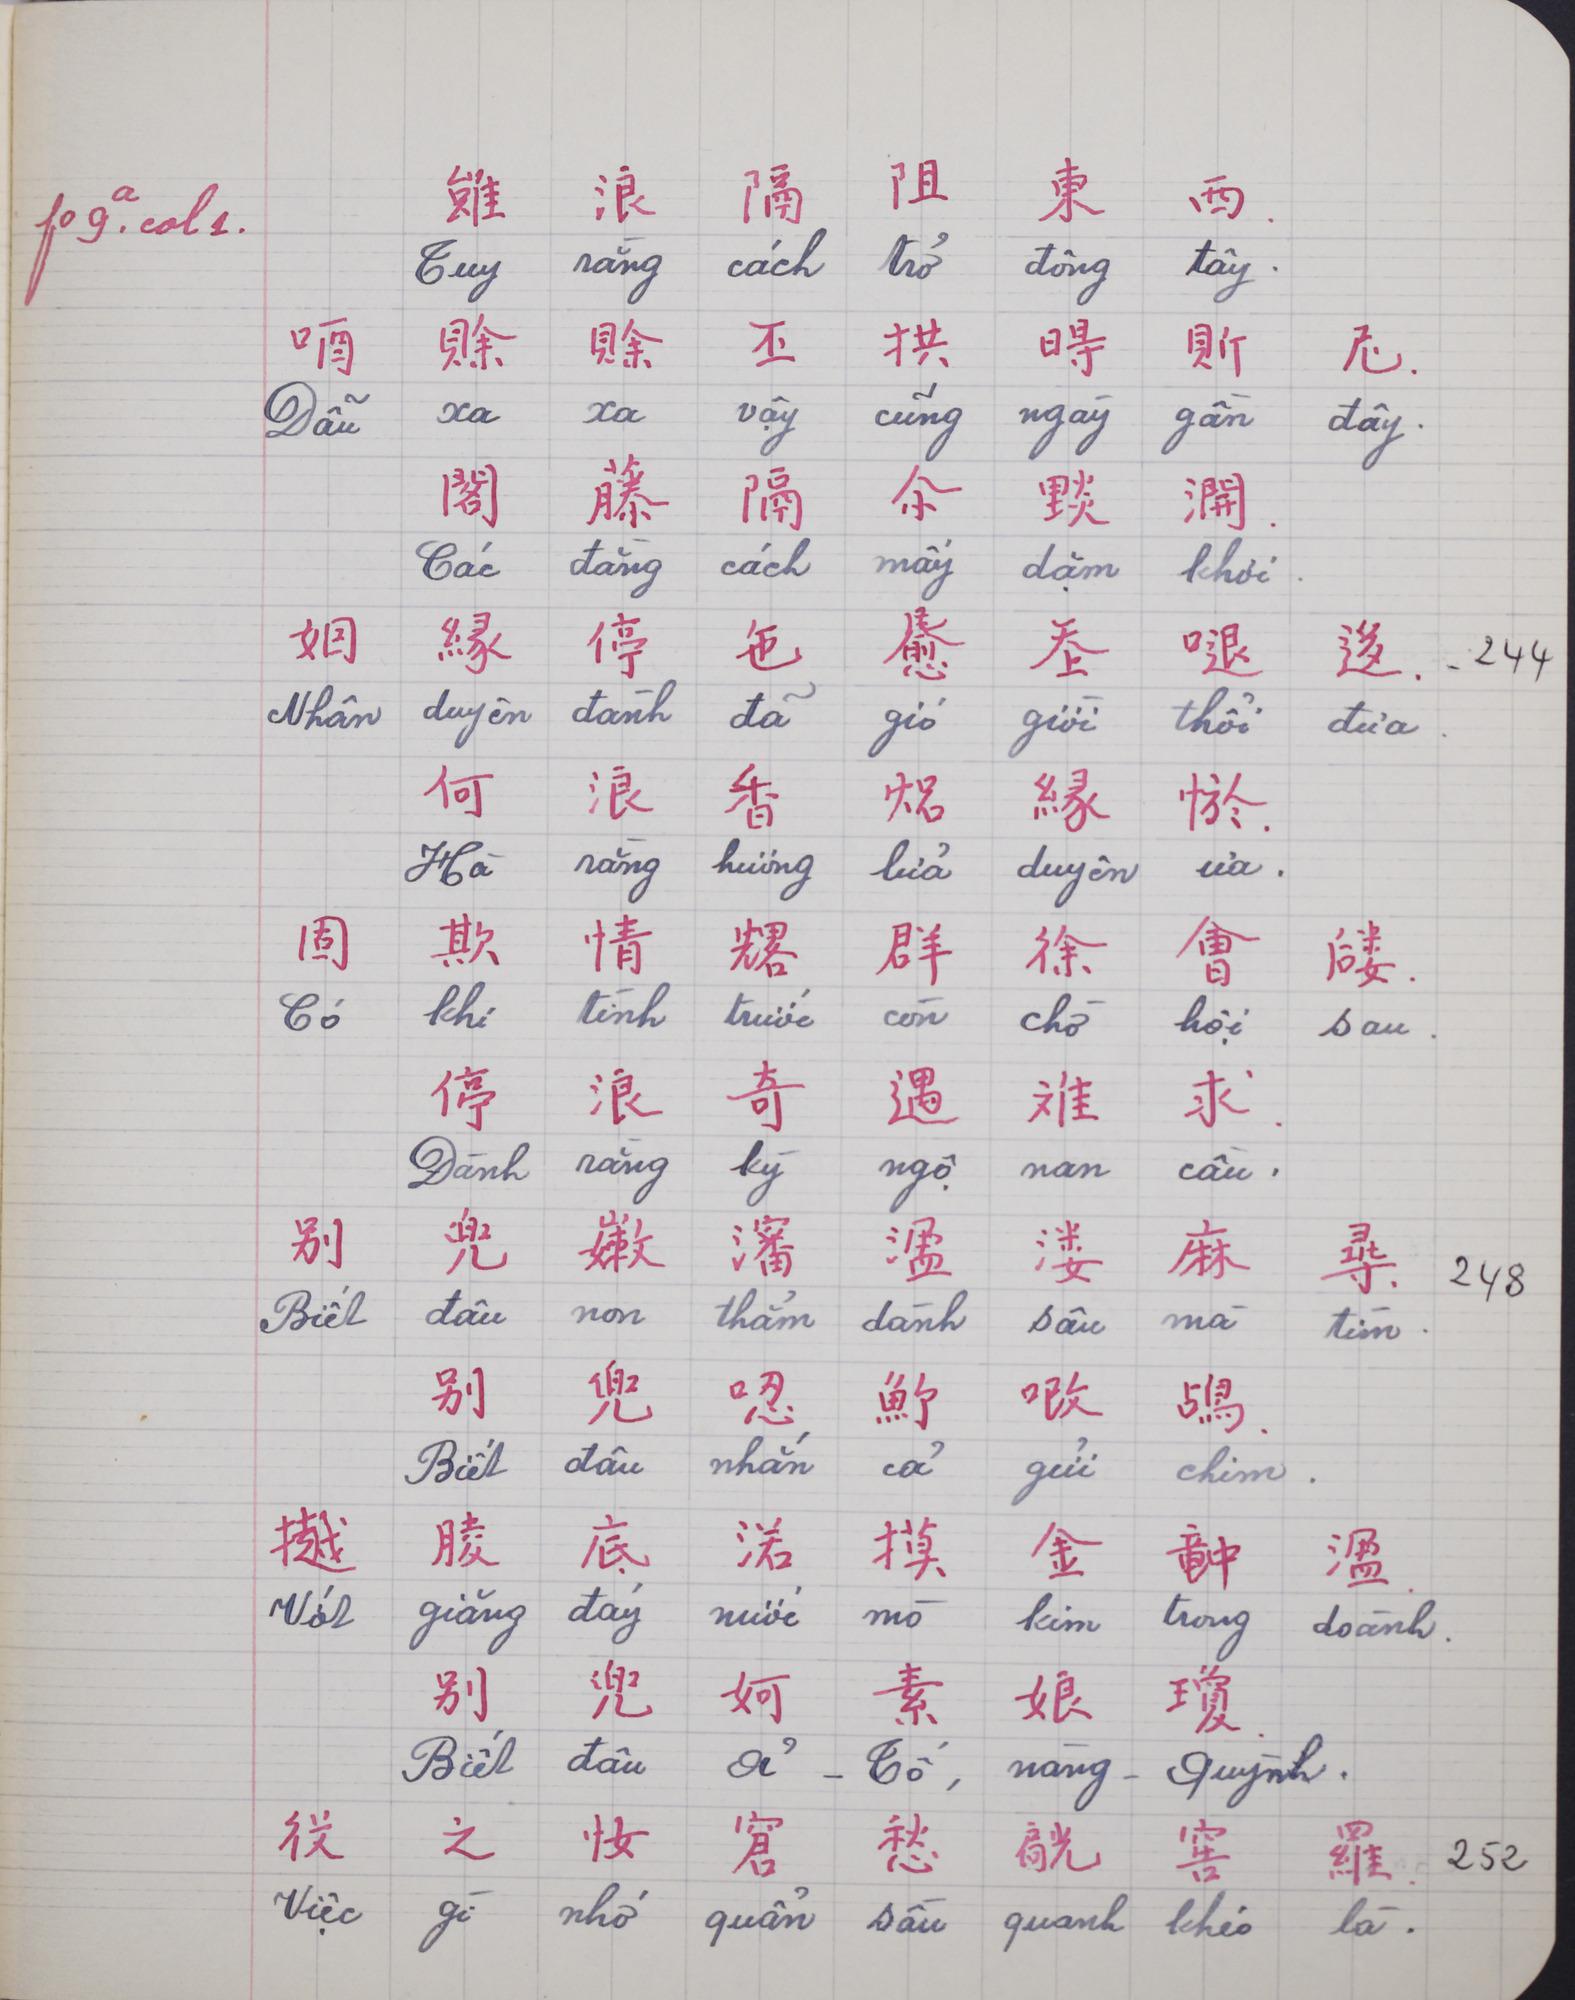 fo 9.a col 1.
雖 浪 隔 阻 東 西.
Tuy rằng cách trở đông tây.
賖 賖 丕 拱 時 尼.
Dẫu xa xa vậy cũng ngaỳ gần đây.
閣 藤 隔 尒 淡 濶.
Các đằng cách mấy dặm khơi.
姻 緣 停 㐌 𠺙.
Nhân duyên đành đã gió giời thổi đưa.
244
何 浪 香 焒 緣 於.
Hà rằng hương lửa duyên ưa.
固 欺 情 群 徐 會.
Có khi tình trước còn chờ hội sau.
停 浪 奇 遇 难 求.
Đành rằng kỳ ngộ nan cầu.
别 兜 嫩 瀋 溋 溇 麻 尋.
Biết đâu non thẳm dành sâu mà tìm.
248
别 兜 㖇.
Biết đâu nhắn cá gửi chim.
底 渃 摸 金 溋.
Vớt giăng đáy nước mò kim trong doành.
别 兜 妸 素 娘 瓊.
Biết đâu Ả - Tố, nàng - Quỳnh.
之 窘 愁 窖 羅.
Việc gì nhớ quẩn sầu quanh khéo là.
252